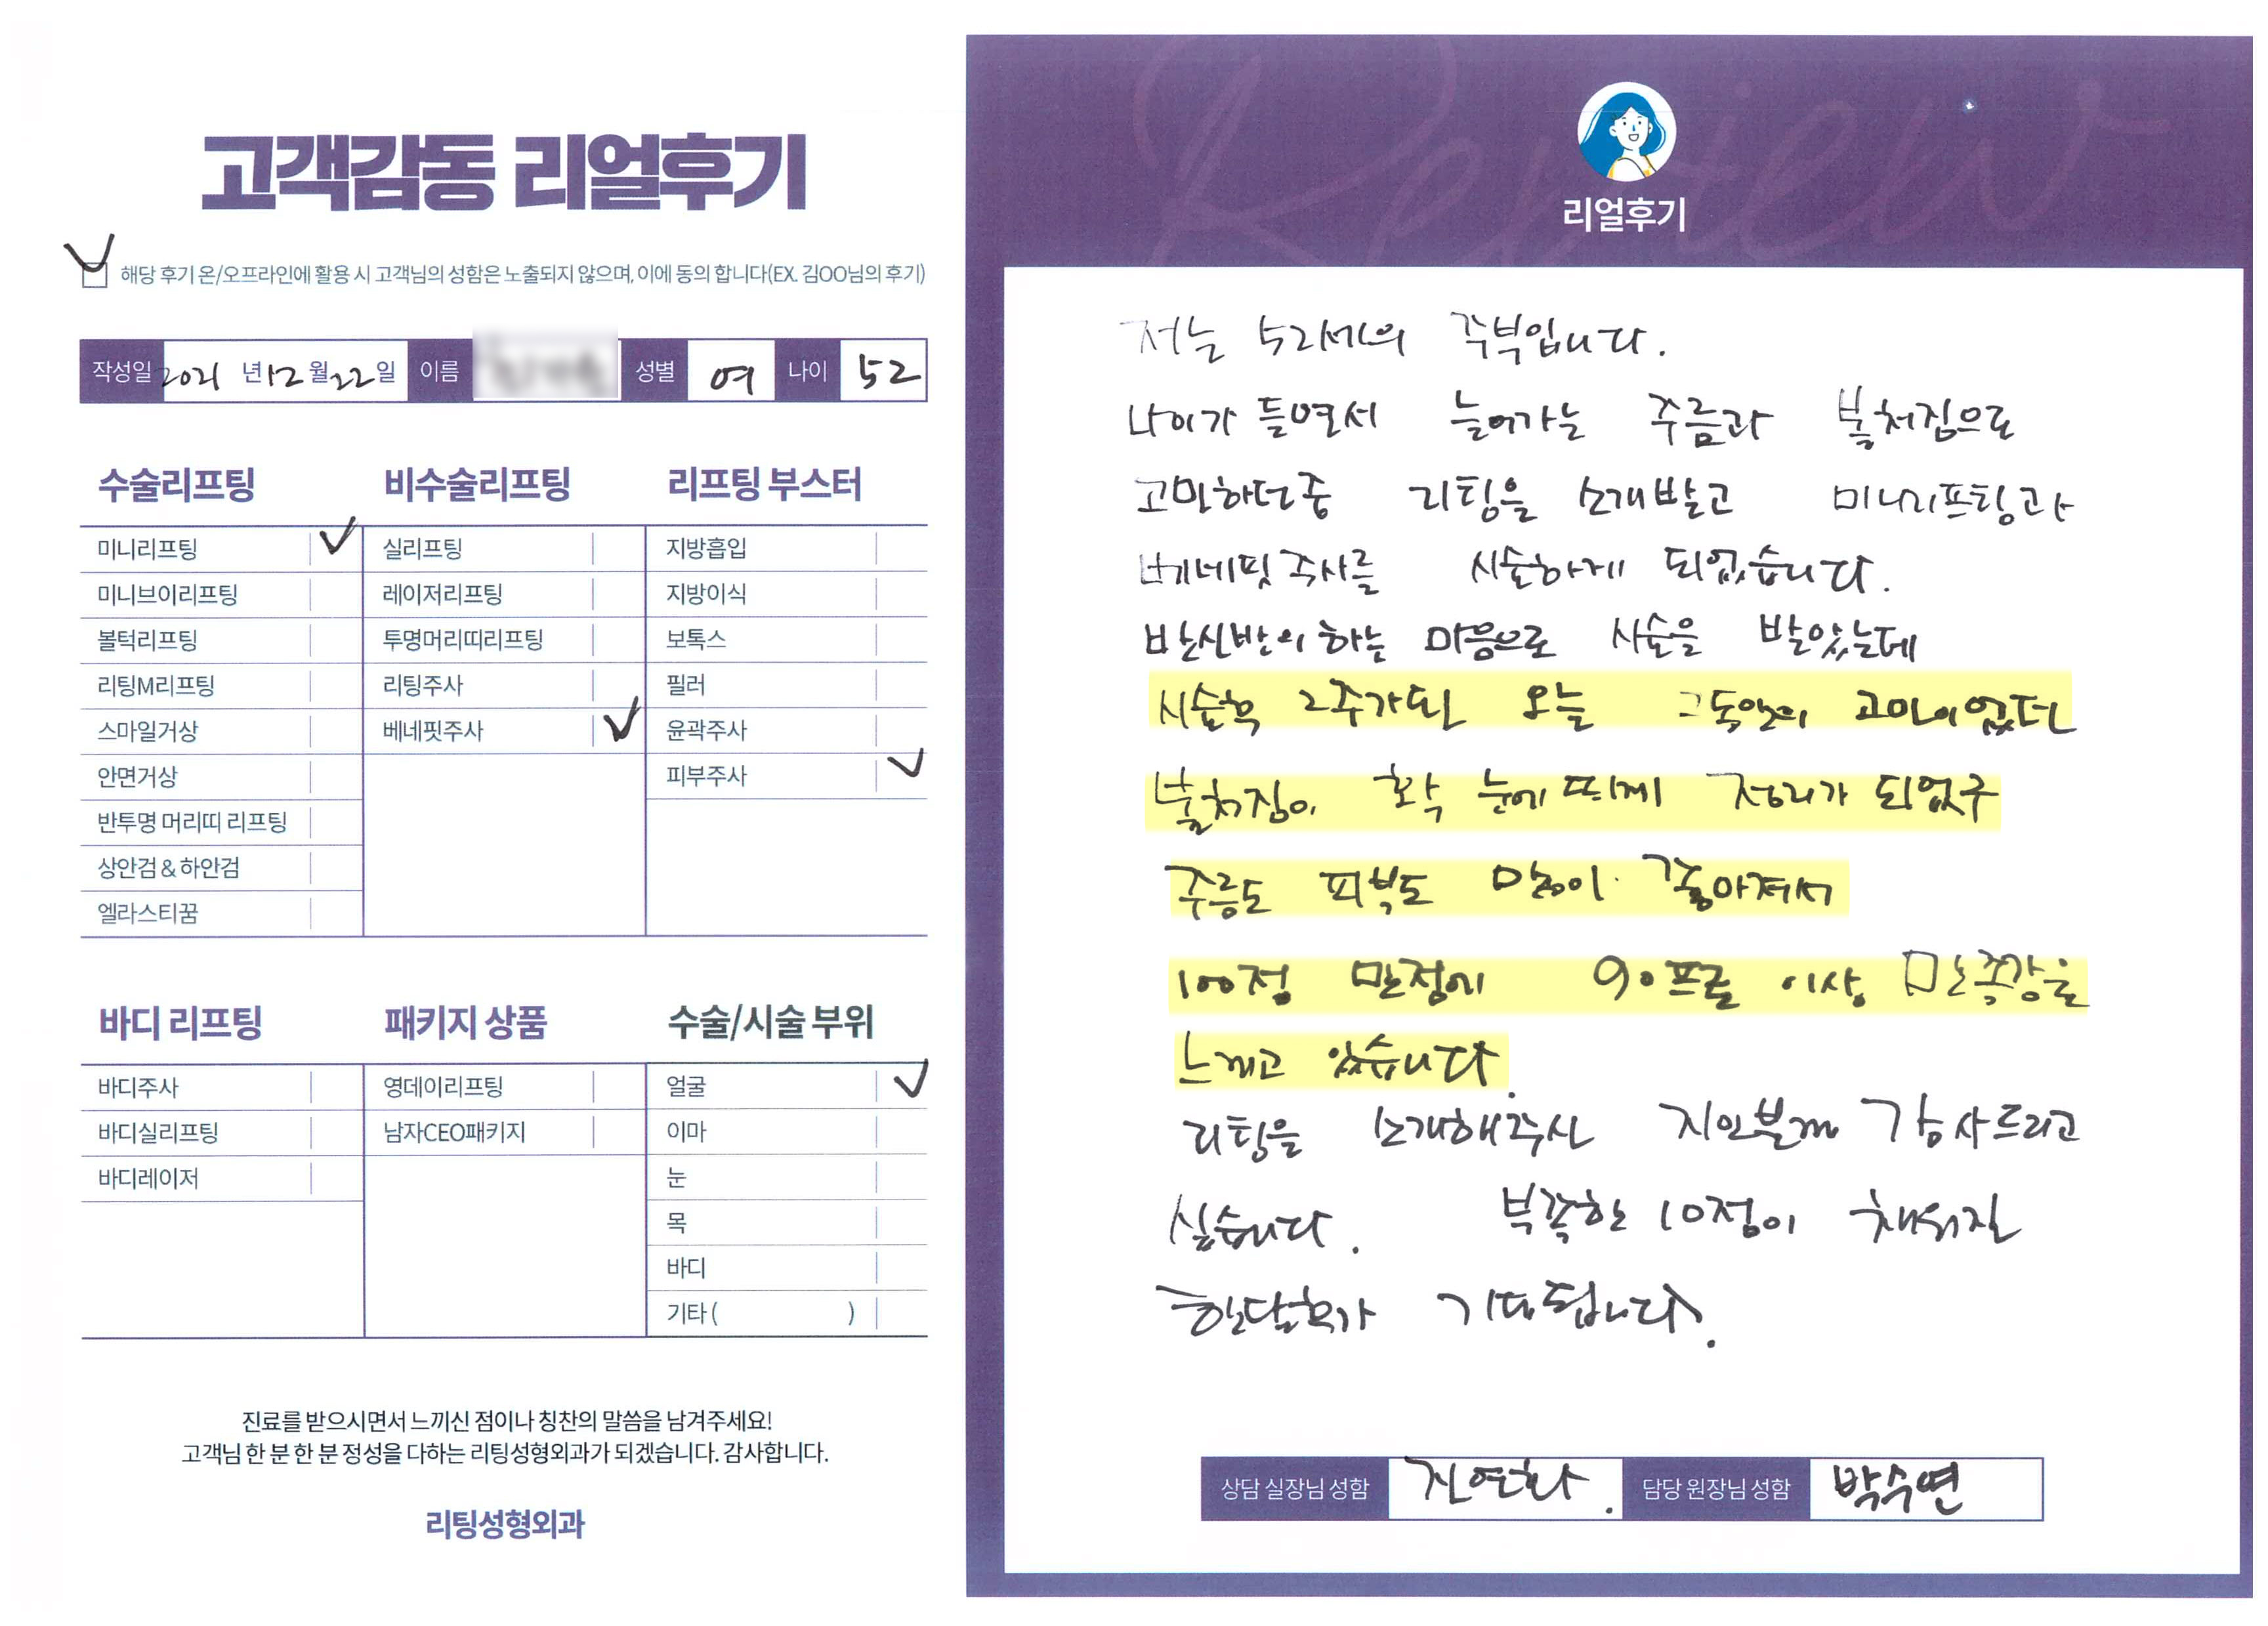 고객감동 리얼후기
해당 후기 온/오프라인에 활용 시 고객님의 성함은 노출되지 않으며, 이에 동의 합니다(EX. 김OO님의 후기)
작성일 2021 년 12 월 22 일 이름 성별 여 나이 52
수술리프팅
미니리프팅
미니브이리프팅
볼턱리프팅
리팅M리프팅
스마일거상
안면거상
반투명 머리띠 리프팅
상안검 & 하안검
엘라스티꿈
비수술리프팅
실리프팅
레이저리프팅
투명머리띠리프팅
리팅주사
베네핏주사
리프팅 부스터
지방흡입
지방이식
보톡스
필러
윤곽주사
피부주사
바디 리프팅
바디주사
바디실리프팅
바디레이저
패키지 상품
영데이리프팅
남자CEO패키지
수술/시술 부위
얼굴
이마
눈
목
바디
기타 ( )
진료를 받으시면서 느끼신 점이나 칭찬의 말씀을 남겨주세요!
고객님 한 분 한 분 정성을 다하는 리팅성형외과가 되겠습니다. 감사합니다.
리팅성형외과
Review
리얼후기
저는 52세의 주부입니다.
나이가 들면서 늘어가는 주름과 볼처짐으로
고민하던중 리팅을 소개받고 미니리프팅과
베네핏주사를 시술하게 되었습니다.
반신반의 하는 마음으로 시술을 받았는데
시술후 2주가된 오늘 그동안의 고민이었던
볼처짐이 확 눈에 띄게 정리가 되었구
주름도 피부도 많이 좋아져서
100점 만점에 90프로 이상 만족감을
느끼고 있습니다.
리팅을 소개해주신 지인분께 감사드리고
싶습니다. 부족한 10점이 채워질
한달후가 기대됩니다.
상담 실장님 성함 진연화. 담당 원장님 성함 박수연